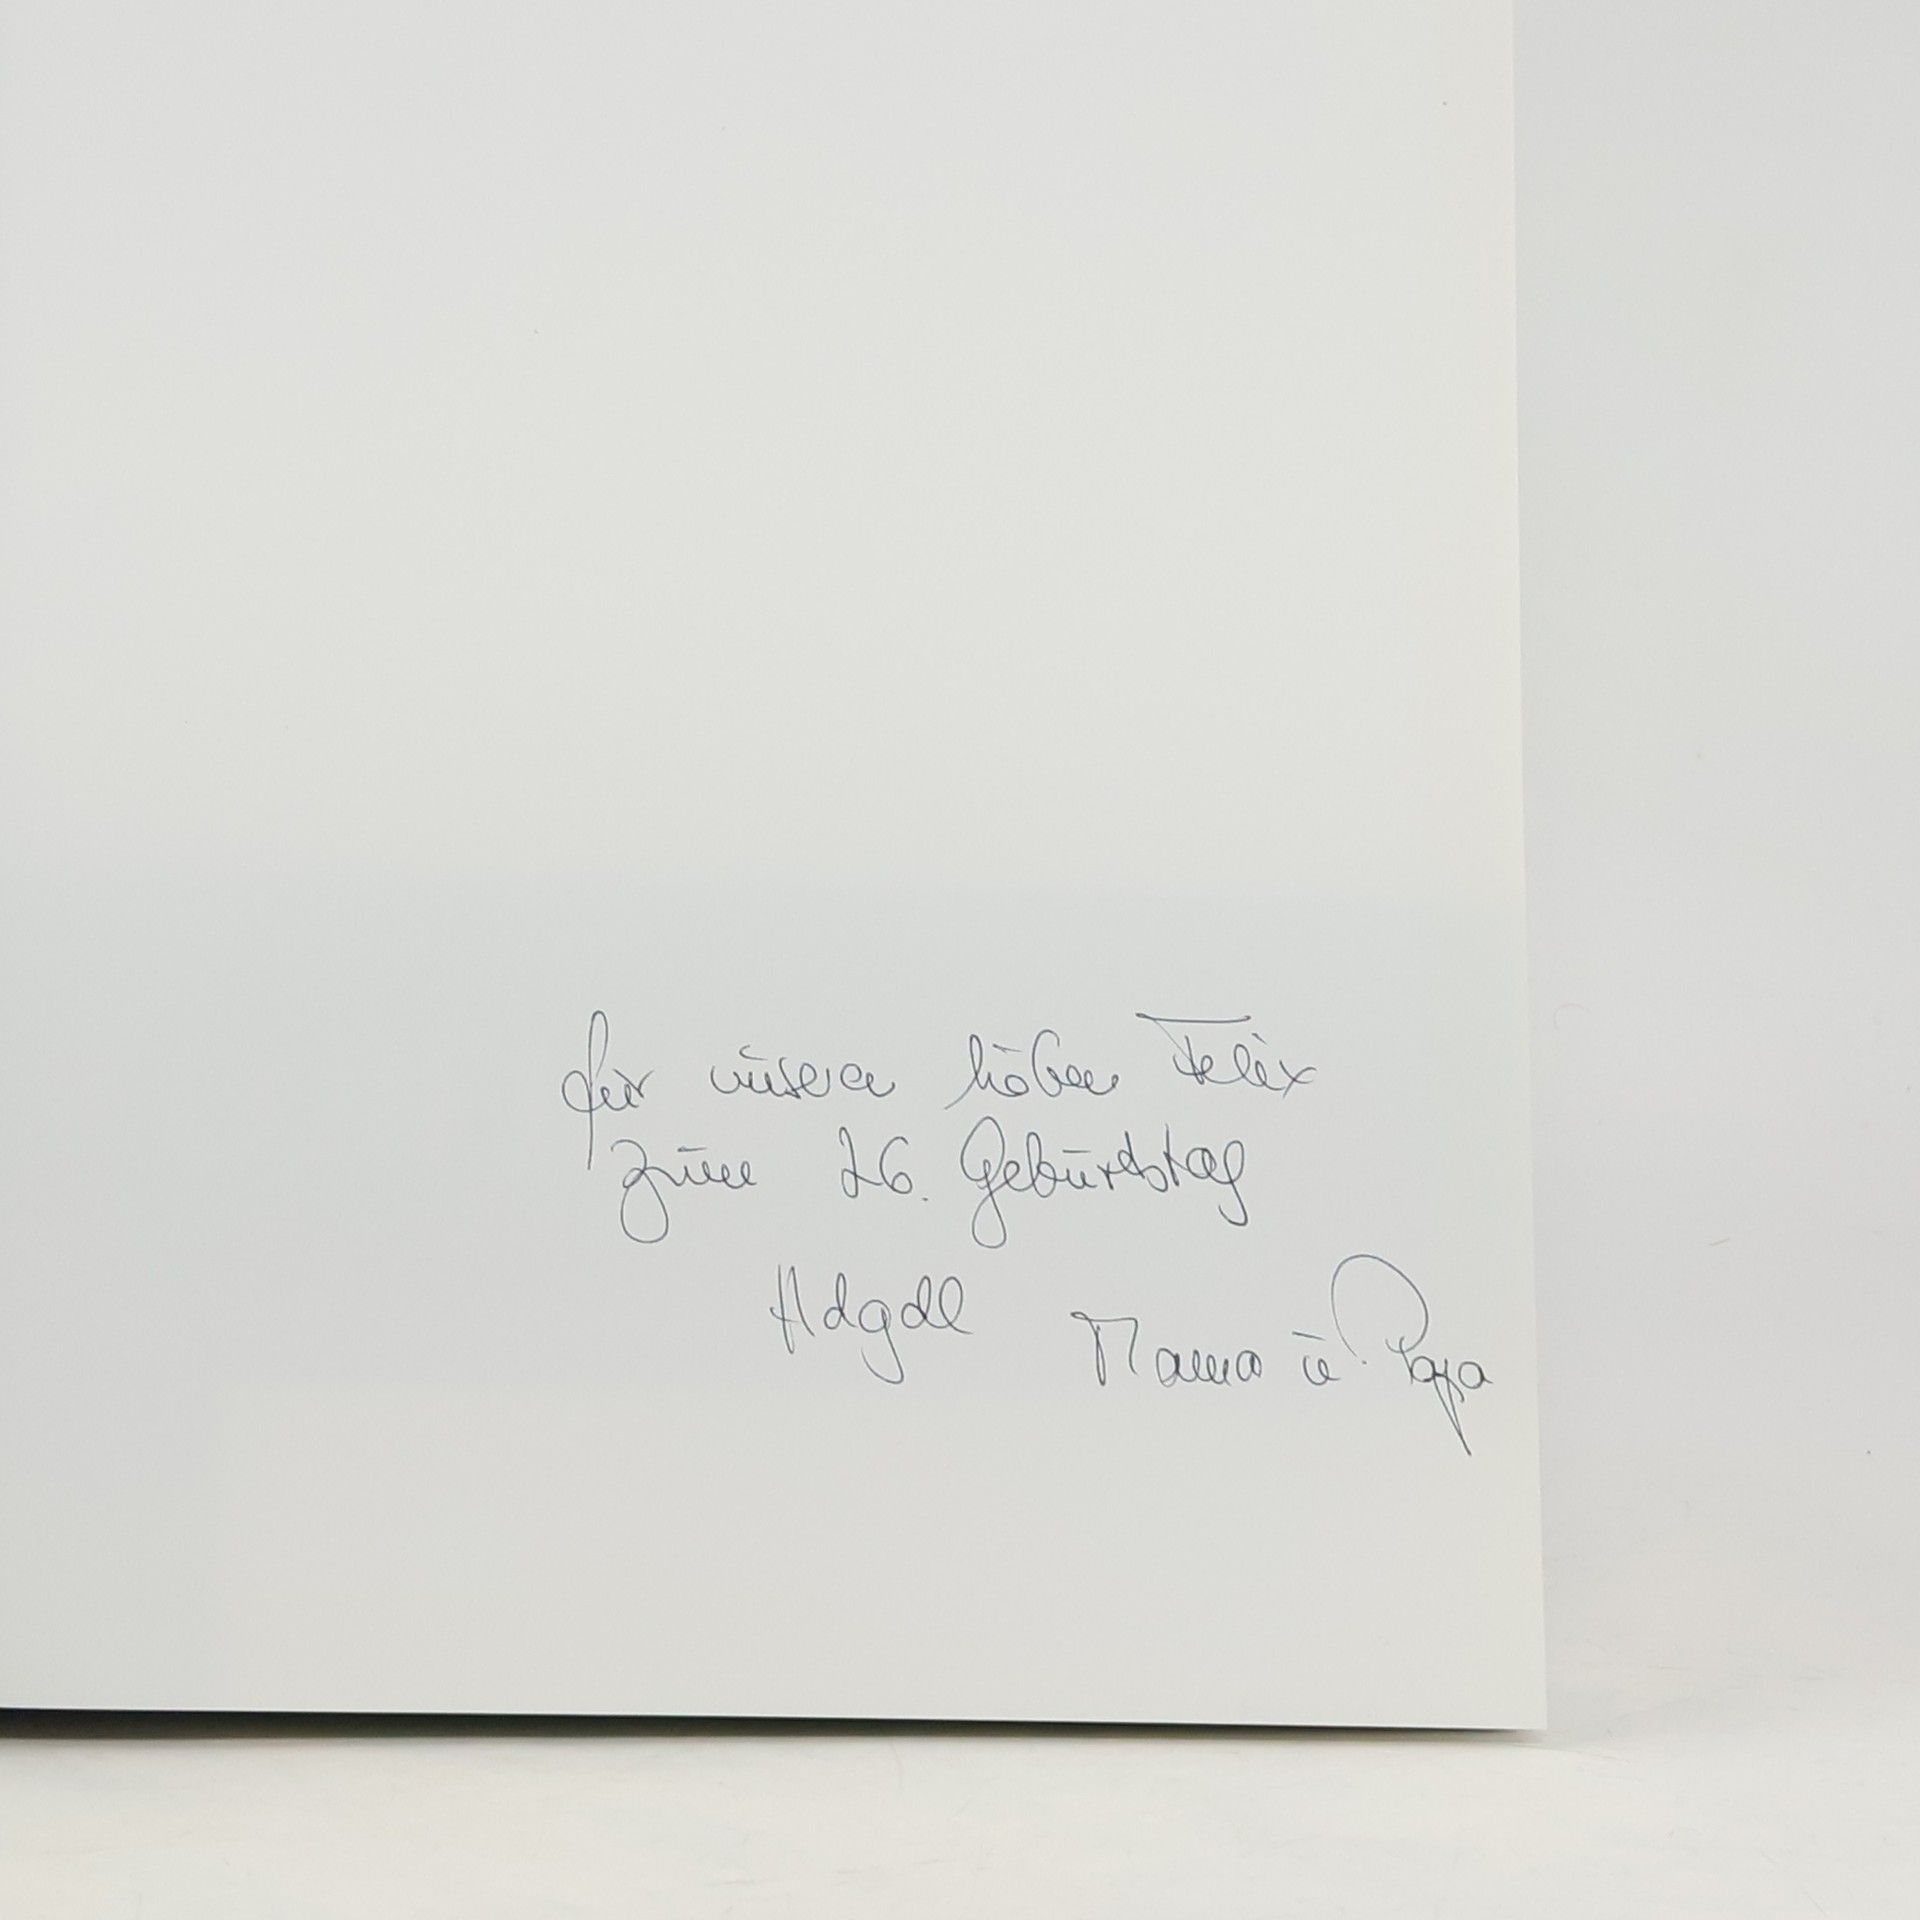 für unseren lieben Felix
zum 26. Geburtstag
Mama u. Papa